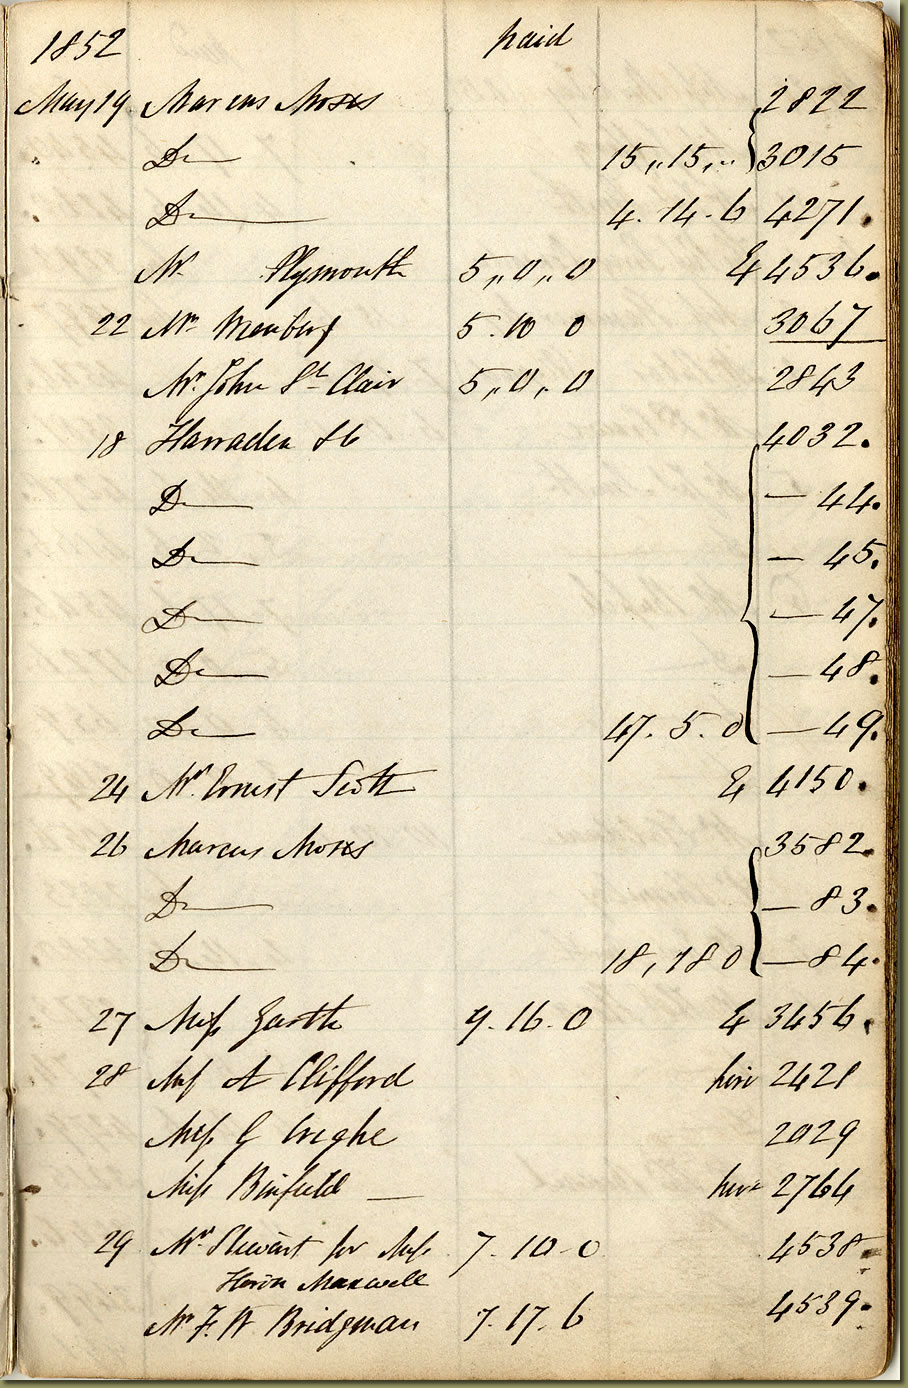 1852 paid
May 19 Marcus Moses 2822
" Do 15,,15,,.. 3015
Do 4.14.6 4271.
Mr Plymouth 5,,0,,0 E 4536.
22 Mr 5.10 0 3067
Mr. John St Clair 5,,0,,0 2843
18 Harraden &c 4032.
Do — 44.
Do — 45.
Do — 47.
Do — 48.
Do 47.5.0 — 49.
24 Mr. Ernest Scott E 4150.
26 Marcus Moses 3582.
Do — 83.
Do 18,18 0 — 84.
27 Miss 9.16.0 E 3456.
28 Miss A Clifford hire 2421
Miss G 2029
Miss Binfield — hire 2764
29 Mr Stewart for Miss 7.10-0 4538.
Heron Maxwell
Mr F. W Bridgman 7.17.6 4539.